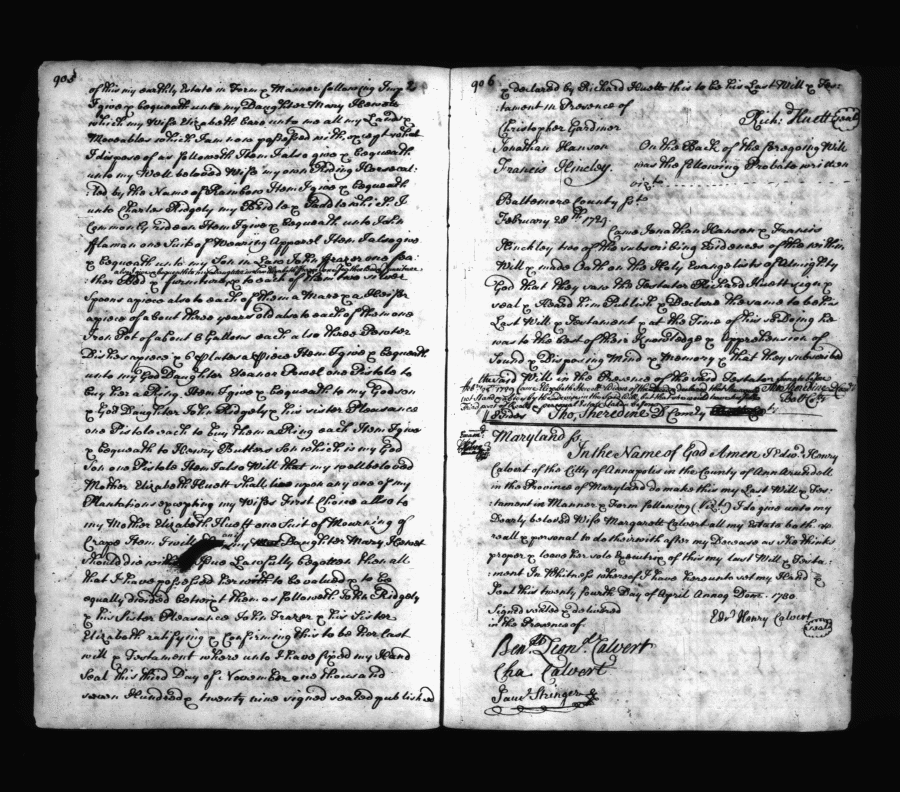 905
of this my earthly Estate in Form & Manner following Imp
I give & bequeath unto my Daughter Mary Hewett
which my Wife Elizabeth Care unto me all my Lands &
Moveables which I am now possessed with except what
I dispose of as followeth Item I also give & bequeath
unto my Well beloved Wife my own Riding Horse cal:
:led by the Name of Rambow Item I give & bequeath
unto Charles Ridgely my Bridle & Saddle which I
Commonly ride on Item I give & bequeath unto John
one Suit of Wearing Apparel Item I also give
& bequeath unto my Son in Law John Frazer one fea
:ther Bed & furniture & to each of them two silver
Spoons apiece also to each of them a Mare & a Heifer
apiece of about three years old also to each of them one
Iron Pot of about 6 Gallons each also three Pewter
Dishes apiece & 6 Plates apiece Item I give & bequeath
unto my God Daughter Eleanor Powel one Pistole to
buy her a Ring Item I give & bequeath to my Godson
& God Daughter John Ridgely & his sister Pleasance
one Pistole each to buy them a Ring each Item I give
& bequeath to Henry Butlers Son which is my God
Son one Pistole Item I also Will that my well beloved
Mother Elizabeth Huett shall live upon any one of my
Plantations excepting my Wifes First Choice also to
my Mother Elizabeth Huett one Suit of Mourning of
Crape Item I will my Daughter Mary Hewet
should die Issue Lawfully begotten then all
that I have possessed her with to be valued & to be
equally divided between them as followeth John Ridgely
& his Sister Pleasance John Frazer & his Sister
Elizabeth ratifying & confirming this to be her last
will & Testament where unto I have fixed my Hand
Seal this third Day of November one thousand
seven Hundred & twenty nine signed sealed published
906
& declared by Richard Huett this to be his Last Will & Tes:
:tament in Presence of
Rich: Huett Seal
Christopher Gardner
Jonathan Hanson
Francis Hinckley.
On the Back of the foregoing Will
was the following Probate written
vizt.
Baltemore County sst
February 28th 1729
Came Jonathan Hanson & Francis
Hinckley two of the subscribing Evidences of the within
Will & made Oath on the Holy Evangelists of Almighty
God that they saw the Testator Richard Huett sign &
seal & Heard him Publish & Declare the same to be his
Last Will & Testament & at the Time of his so doing he
was to the best of their Knowledge & apprehension of
sound & Disposing Mind & Memory & that they subscribed
the said Will in the Presence of the said Testator
Tho. Sheredine D Comry
Maryland ss
In the Name of God Amen I Edwd. Henry
Calvert of the Citty of Annapolis in the County of Ann Arundell
in the Province of Maryland do make this my Last Will & Tes:
:tament in Manner & Form following (Vizt.) I do give unto my
Dearly beloved Wife Margarett Calvert all my Estate both
reall & personal to do therewith after my Decease as she thinks
proper & leave her sole Executrix of this my last Will & Testa:
:ment In Whitness whereof I have hereunto set my Hand &
Seal this twenty fourth Day of April Annoq Dom. 1730
Signed sealed & delivered
in the Presence of
Edwd. Henry Calvert
Seal
Ben. Leond. Calvert
Cha Calvert
Saml. Stringer